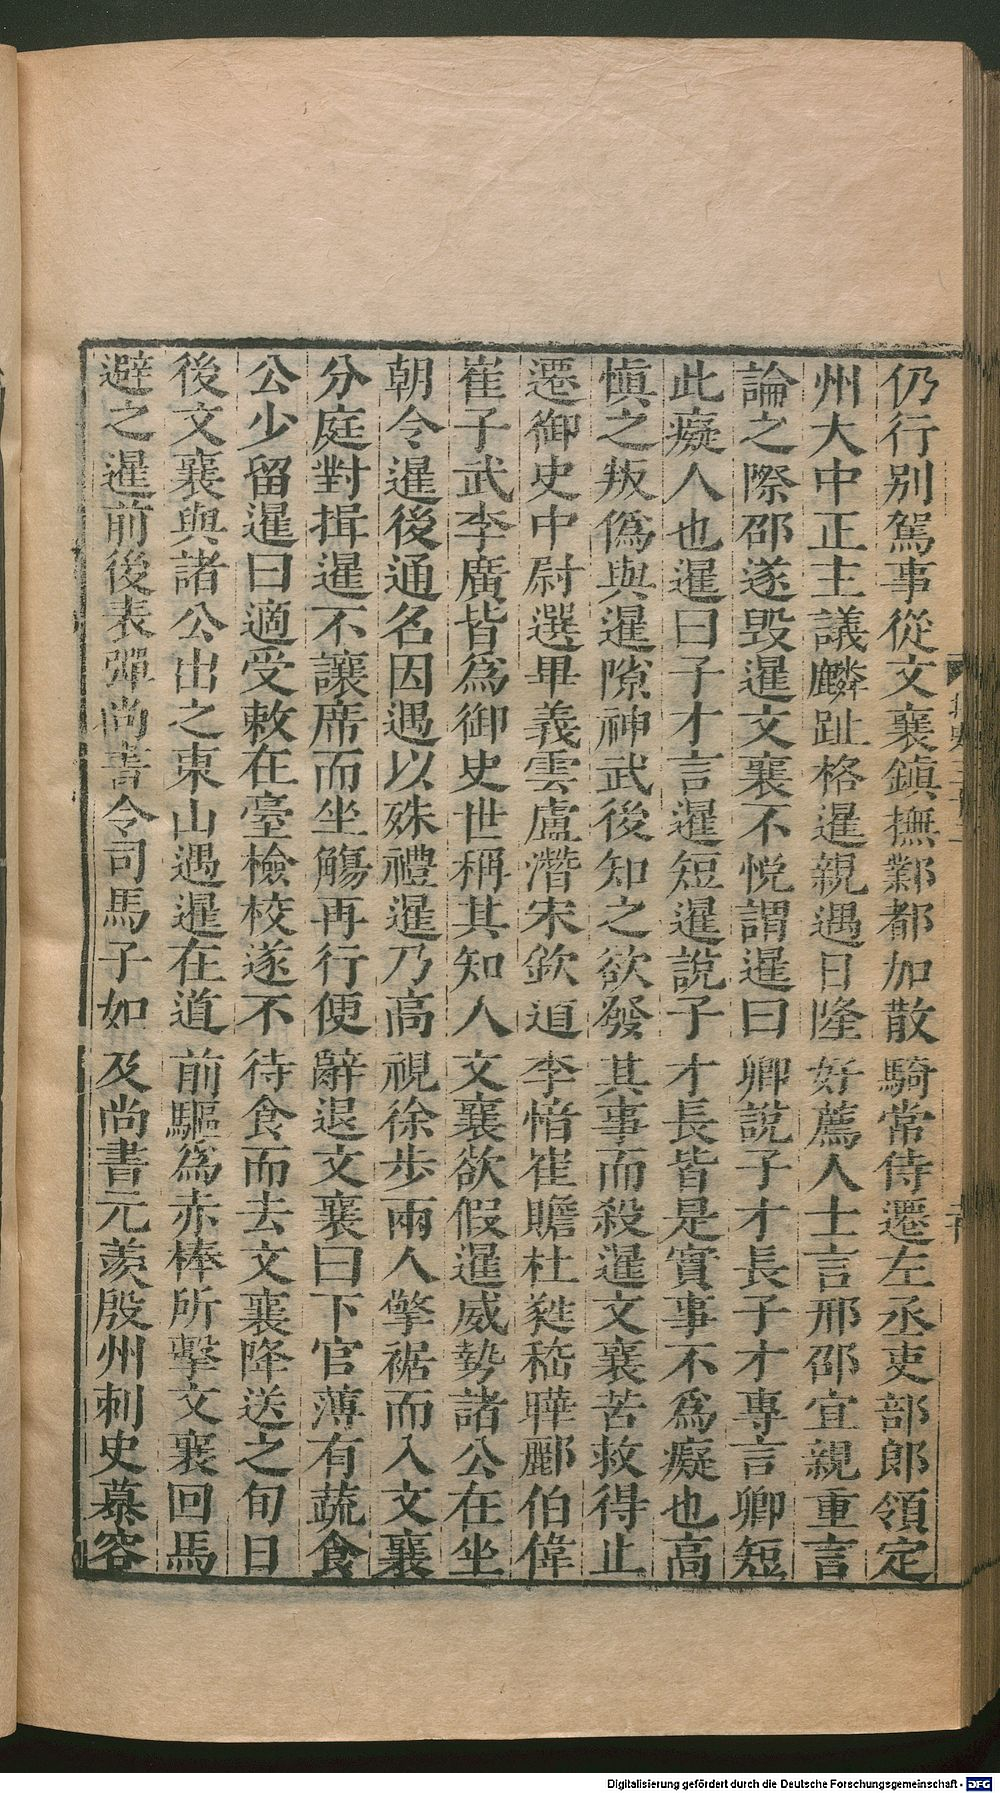 仍行别駕事從文襄鎮撫鄴都加散騎常侍遷左丞吏部郎領定
州大中正主議麟趾格暹親遇日隆好薦人士言邢邵宜親重言
論之際邵遂毁暹文襄不悅謂暹曰卿說子才長子才專言卿短
此癡人也暹曰子才言暹短暹說子才長皆是實事不爲癡也高
愼之叛僞與暹隙神武後知之欲發其事而殺暹文襄苦救得止
遷御史中尉選畢義雲盧潛宋欽道李愔崔贍杜蕤嵇曄酈伯偉
崔子武李廣皆爲御史世稱其知人文襄欲假暹威勢諸公在坐
朝令暹後通名因遇以殊禮暹乃高視徐步兩人擎裾而入文襄
分庭對揖暹不讓席而坐觴再行便辭退文襄曰下官薄有蔬食
公少留暹曰適受敕在臺檢校遂不待食而去文襄降送之旬日
後文襄與諸公出之東山遇暹在道前驅爲赤棒所擊文襄回馬
避之暹前後表彈尚書令司馬子如及尚書元羨殷州刺史慕容
Digitalisierung gefördert durch die Deutsche Forschungsgemeinschaft - DFG